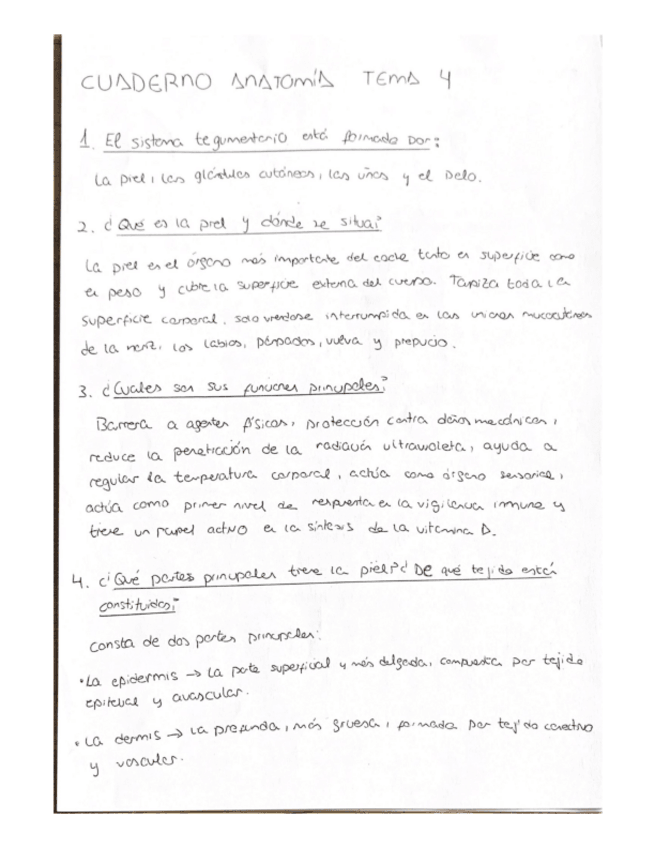 CUADERNO ANATOMÍA TEMA 4
1. El sistema tegumentario está formado por:
La piel, las glándulas cutáneas, las uñas y el pelo.
2. ¿Qué es la piel y dónde se situa?
La piel es el órgano más importante del coche tanto en superficie como
en peso y cubre la superficie externa del cuerpo. Tapiza toda la
superficie corporal, solo viendose interrumpida en las uniones mucocutáneas
de la nariz, los labios, párpados, vulva y prepucio.
3. ¿Cuales son sus funciones principales?
Barrera a agentes físicos, protección contra daños mecánicos,
reduce la penetración de la radiación ultravioleta, ayuda a
regular la temperatura corporal, actúa como órgano sensorial,
actúa como primer nivel de respuesta en la vigilancia inmune y
tiene un papel activo en la síntesis de la vitamina D.
4. ¿Qué partes principales tiene la piel? ¿De qué tejido está
constituidos?
Consta de dos partes principales:
• La epidermis → La parte superficial y más delgada, compuesta por tejido
epitelial y avascular.
• La dermis → La profunda, más gruesa, formada por tejido conectivo
y vascular.